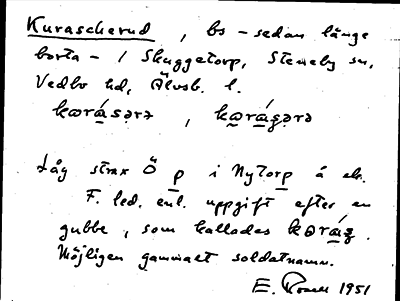 Kurascherud, bs – sedan länge
borta – i Skuggetorp, Steneby sn,
Vedbo hd, Älvsb. l.
kɷrásərə, kɷrásərə
Låg strax Ö p i Nytorp å ek.
F. led. enl. uppgift efter en
gubbe, som kallades
Möjligen gammalt soldatnamn.
E. 1951